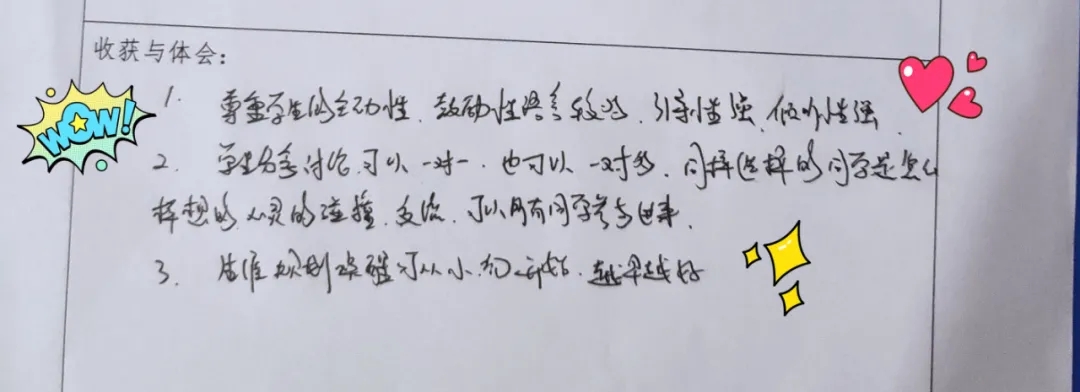 收获与体会：
WOW!
1. 尊重学生的主动性、鼓励性语言较多、引导性强、倾听性强.
2. 学生分享讨论,可以一对一.也可以一对多.同样选择的同学是怎么
样想的,心灵的碰撞.交流.可以所有同学参与进来.
3. 生涯规划唤醒可从小初开始.越早越好